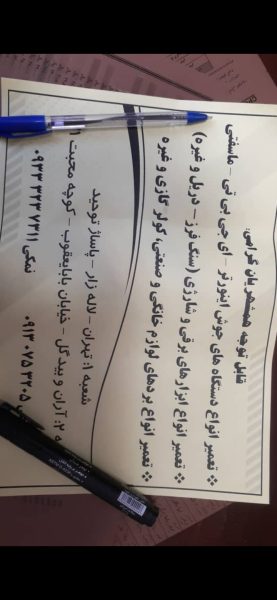 قابل توجه همشهریان گرامی:
❖ تعمیر انواع دستگاه های جوش اینورتر - ای جی بی تی - ماسفتی
❖ تعمیر انواع ابزارهای برقی و شارژی (سنگ فرز - دریل و غیره)
❖ تعمیر انواع بردهای لوازم خانگی و صنعتی، کولر گازی و غیره
شعبه ۱: تهران - لاله زار - پاساژ توحید
ه ۲: آران و بیدگل - خیابان بابایعقوب - کوچه محبت
۰۹۳۳ ۳۲۳ ۷۳۱۱ نمکی ۰۹۱۳ ۰۷۵ ۳۲۰۵